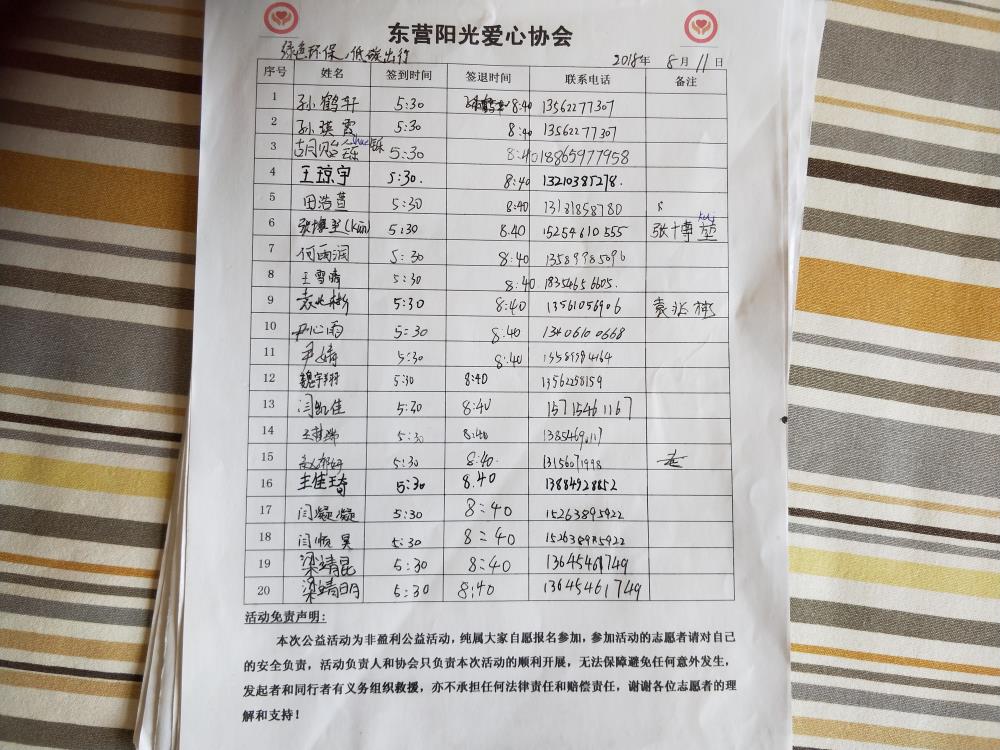 东营阳光爱心协会
绿色环保,低碳出行 2018年 8月11日
序号 姓名 签到时间 签退时间 联系电话 备注
1 孙鹤轩 5:30 8:40 13562277307
2 孙瑛霞 5:30 8:40 13562277307
3 胡贻铄 5:30 8:40 18865977958
4 王琼宇 5:30. 8:40 13210385278.
5 田浩萱 5:30 8:40 13131858780
6 张博堃(kun) 5:30 8.40 15254610555 张博堃
7 何雨润 5:30 8:40 13589985096
8 王雪晴 5:30 8:40 18354656605.
9 袁兆彬 5:30 8:40 13561056906 袁兆彬
10 尹心雨 5:30 8:40 13406100668
11 尹婧 5:30 8:40
12 魏宇翔 5:30 8:40 13562258159
13 闫凯佳 5:30 8:40 15715461167
14 5:30 8:40
15 5:30 8:40. 13156071998
16 王佳琦 5:30 8.40 13884928852
17 闫凝凝 5:30 8:40 15263895922
18 闫恢昊 5:30 8:40 15263895922
19 梁靖昆 5:30 8:40 13645461749
20 梁靖明 5:30 8:40 13645461749
活动免责声明:
本次公益活动为非盈利公益活动,纯属大家自愿报名参加,参加活动的志愿者请对自己
的安全负责,活动负责人和协会只负责本次活动的顺利开展,无法保障避免任何意外发生,
发起者和同行者有义务组织救援,亦不承担任何法律责任和赔偿责任,谢谢各位志愿者的理
解和支持!